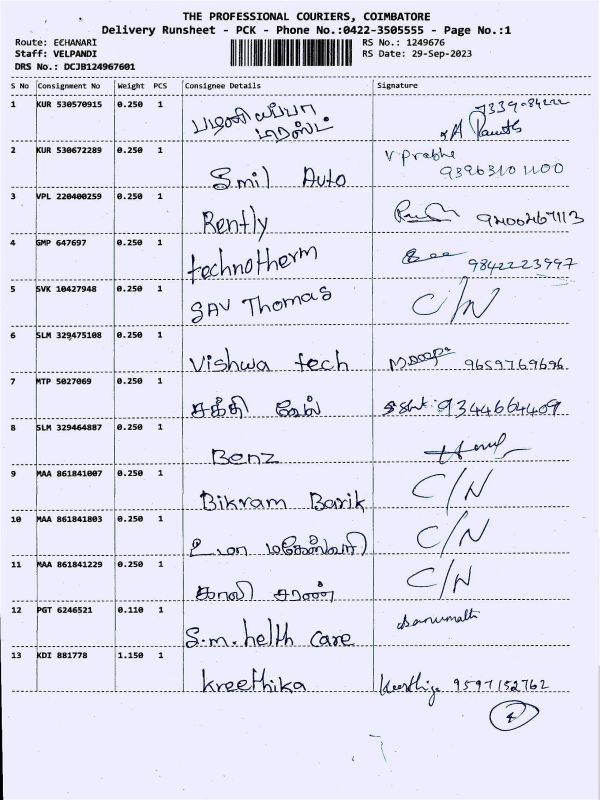 THE PROFESSIONAL COURIERS, COIMBATORE
Delivery Runsheet - PCK - Phone No.:0422-3505555 - Page No.:1
Route: ECHANARI RS No.: 1249676
Staff: VELPANDI RS Date: 29-Sep-2023
DRS No.: DCJB124967601
S No Consignment No Weight PCS Consignee Details Signature
1 KUR 530570915 0.250 1 பழனியப்பா
டிரஸ்ட்
2 KUR 530672289 0.250 1 Smil Auto V Prabhe
3 VPL 220400259 0.250 1 Rently
4 GMP 647697 0.250 1 technotherm 9842223997
5 SVK 10427948 0.250 1 SAV Thomas C/N
6 SLM 329475108 0.250 1 Vishwa tech 9659769696
7 MTP 5027069 0.250 1 சக்தி வேல் 9344664409
8 SLM 329464887 0.250 1 Benz
9 MAA 861841007 0.250 1 Bikram Barik C/N
10 MAA 861841803 0.250 1 உமா மகேஸ்வரி C/N
11 MAA 861841229 0.250 1 காவி சரண் C/N
12 PGT 6246521 0.110 1 S.m. helth care Banumathi
13 KDI 881778 1.150 1 Kreethika 9597152762